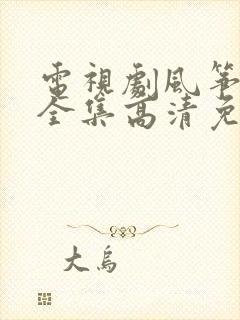 電視劇風箏
全集高清免
大烏